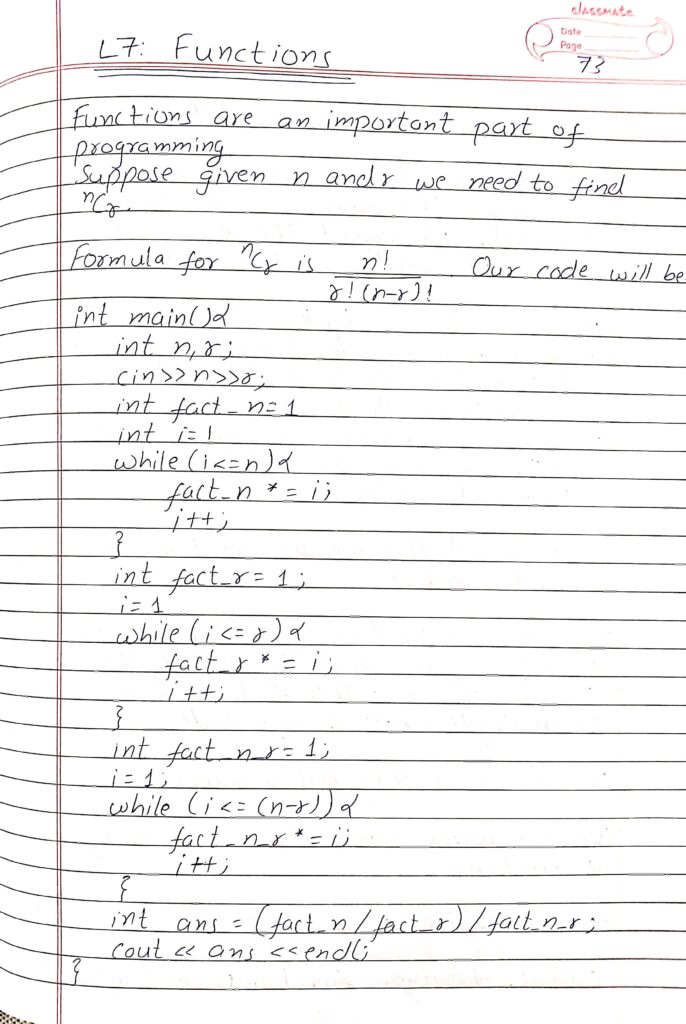 classmate
Date
Page
73
L7: Functions
Functions are an important part of
programming
Suppose given n and r we need to find
ⁿCr.
Formula for ⁿCr is n!/r!(n-r)! . Our code will be
int main(){
int n,r;
cin>>n>>r;
int fact_n=1
int i=1
while(i<=n){
fact_n *= i;
i++;
}
int fact_r=1;
i=1
while(i<=r){
fact_r *= i;
i++;
}
int fact_n_r=1;
i=1;
while (i<=(n-r)){
fact_n_r *= i;
i++;
}
int ans = (fact_n/fact_r)/fact_n_r;
cout << ans <<endl;
}